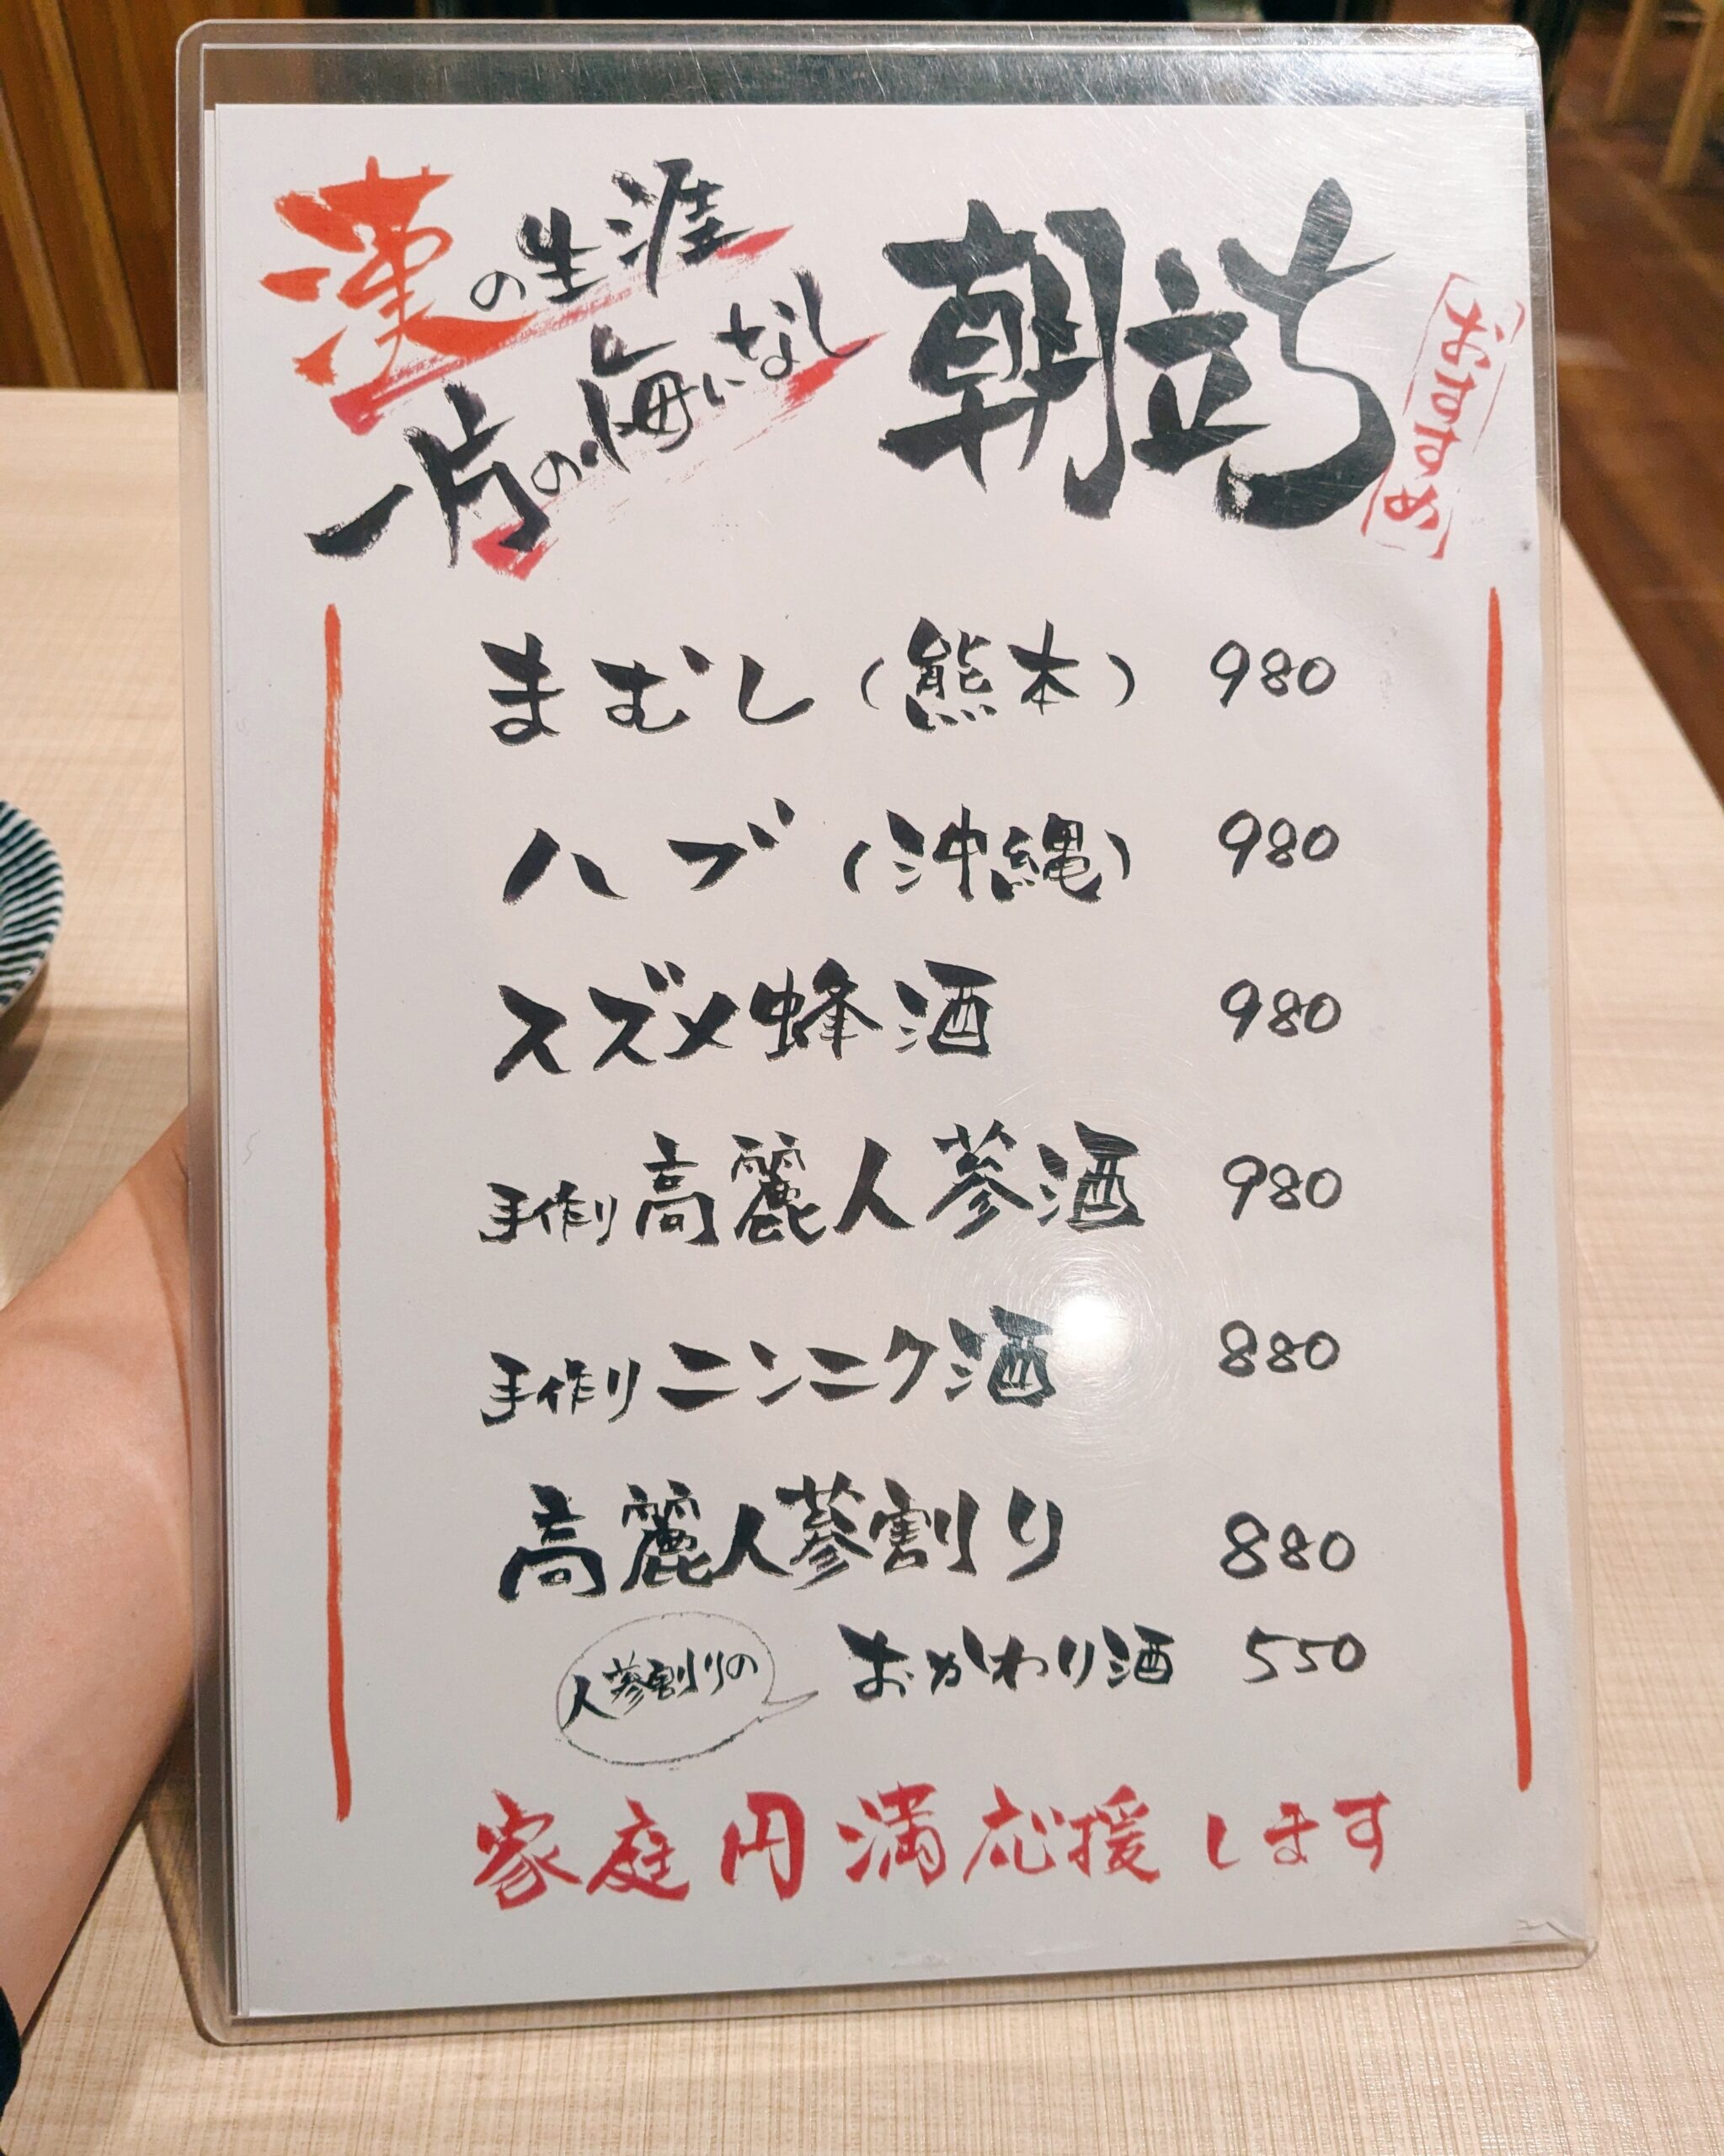 漢の生涯
一片の悔いなし
朝立ち
おすすめ
まむし(熊本) 980
ハブ(沖縄) 980
スズメ蜂酒 980
手作り高麗人蔘酒 980
手作りニンニク酒 880
高麗人蔘割り 880
人蔘割りの おかわり酒 550
家庭円満応援します